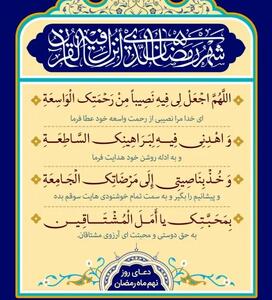 شهر رمضان الذی انزل فیه القرآن
اللَّهُمَّ اجْعَلْ لِی فِیهِ نَصِیباً مِنْ رَحْمَتِكَ الْوَاسِعَةِ
ای خدا مرا نصیبی از رحمت واسعه خود عطا فرما
وَ اهْدِنِی فِیهِ لِبَرَاهِینِكَ السَّاطِعَةِ
و به ادله روشن خود هدایت فرما
وَ خُذْ بِنَاصِیَتِی إِلَى مَرْضَاتِكَ الْجَامِعَةِ
و پیشانیم را بگیر و به سمت تمام خوشنودی هایت سوقم بده
بِمَحَبَّتِكَ یَا أَمَلَ الْمُشْتَاقِینَ
به حق دوستی و محبتت ای آرزوی مشتاقان.
دعـای روز
نهم ماه رمضان